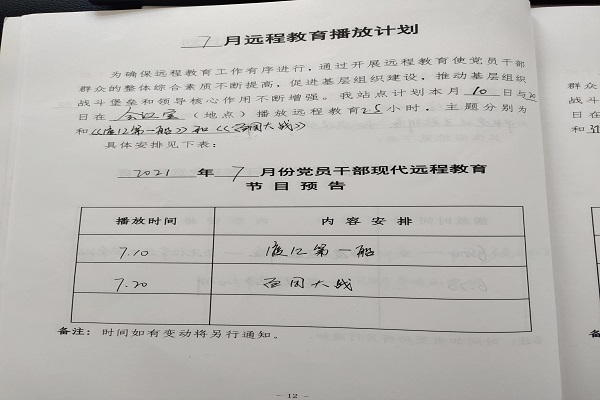 7月远程教育播放计划
为确保远程教育工作有序进行，通过开展远程教育使党员干部
群众的整体综合素质不断提高，促进基层组织建设，推动基层组织
战斗堡垒和领导核心作用不断增强。我站点计划本月10日与20
日在会议室（地点）播放远程教育2.5小时，主题分别为
和《渡江第一船》和《百团大战》
具体安排见下表：
2021年7月份党员干部现代远程教育
节目预告
播放时间 内容安排
7.10 渡江第一船
7.20 百团大战
备注：时间如有变动将另行通知。
- 12 -